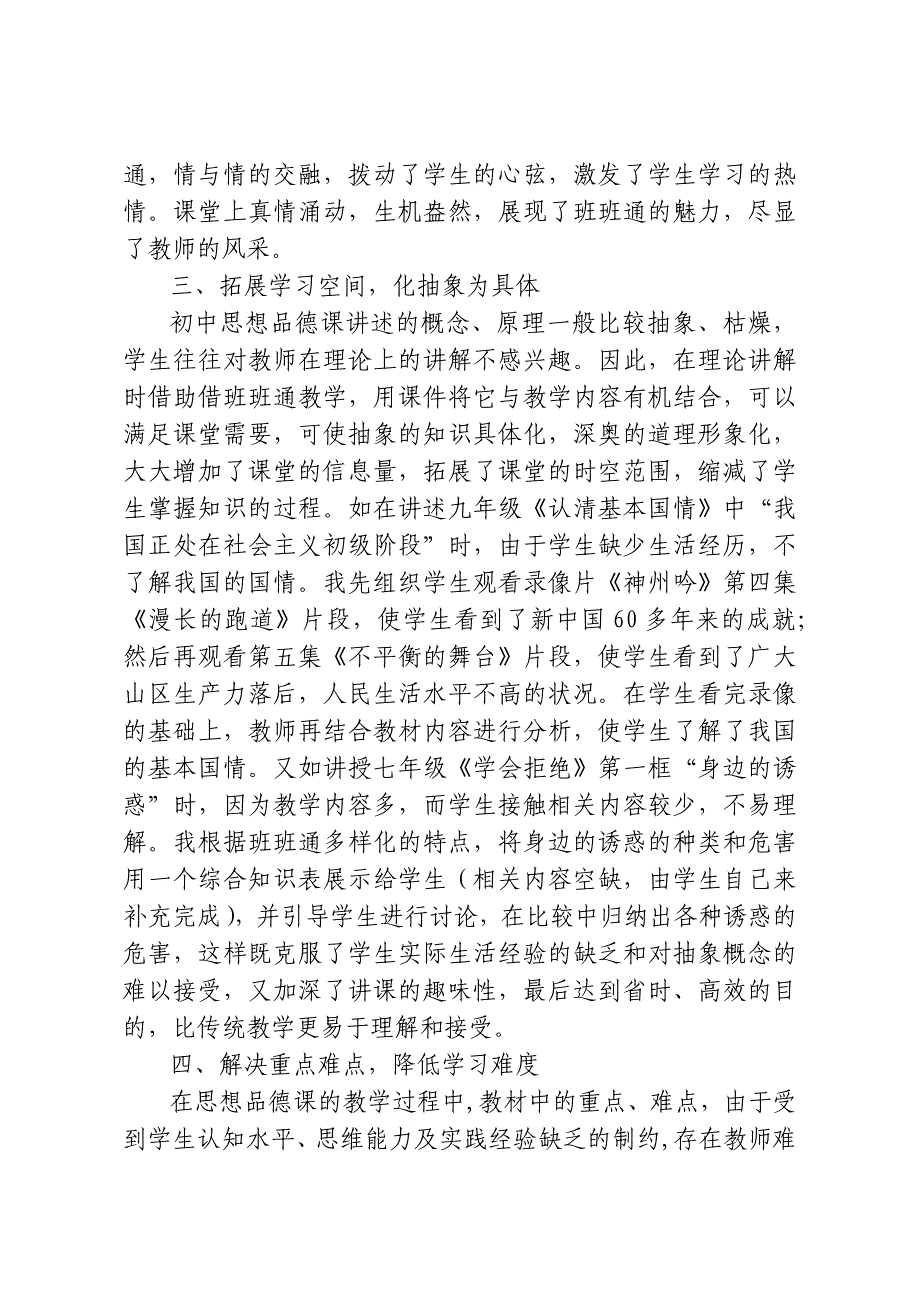 通，情与情的交融，拨动了学生的心弦，激发了学生学习的热
情。课堂上真情涌动，生机盎然，展现了班班通的魅力，尽显
了教师的风采。
三、拓展学习空间，化抽象为具体
初中思想品德课讲述的概念、原理一般比较抽象、枯燥，
学生往往对教师在理论上的讲解不感兴趣。因此，在理论讲解
时借助借班班通教学，用课件将它与教学内容有机结合，可以
满足课堂需要，可使抽象的知识具体化，深奥的道理形象化，
大大增加了课堂的信息量，拓展了课堂的时空范围，缩减了学
生掌握知识的过程。如在讲述九年级《认清基本国情》中“我
国正处在社会主义初级阶段”时，由于学生缺少生活经历，不
了解我国的国情。我先组织学生观看录像片《神州吟》第四集
《漫长的跑道》片段，使学生看到了新中国 60 多年来的成就；
然后再观看第五集《不平衡的舞台》片段，使学生看到了广大
山区生产力落后，人民生活水平不高的状况。在学生看完录像
的基础上，教师再结合教材内容进行分析，使学生了解了我国
的基本国情。又如讲授七年级《学会拒绝》第一框“身边的诱
惑”时，因为教学内容多，而学生接触相关内容较少，不易理
解。我根据班班通多样化的特点，将身边的诱惑的种类和危害
用一个综合知识表展示给学生（相关内容空缺，由学生自己来
补充完成），并引导学生进行讨论，在比较中归纳出各种诱惑的
危害，这样既克服了学生实际生活经验的缺乏和对抽象概念的
难以接受，又加深了讲课的趣味性，最后达到省时、高效的目
的，比传统教学更易于理解和接受。
四、解决重点难点，降低学习难度
在思想品德课的教学过程中,教材中的重点、难点，由于受
到学生认知水平、思维能力及实践经验缺乏的制约,存在教师难